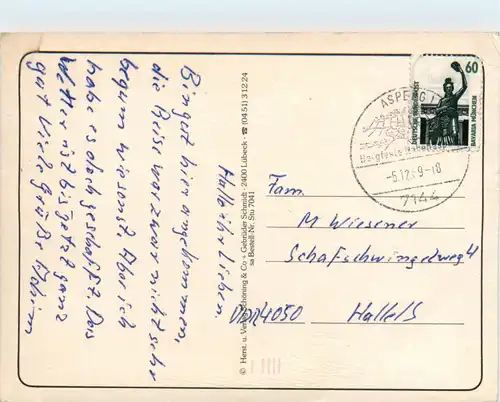 Hallo ihr Lieben
Bin gut hier angekommen,
die Reise war zwar nicht sehr
bequem wie sonst. Aber ich
habe es doch geschafft. Das
Wetter ist bis jetzt ganz
gut Viele Grüße
© Herst. u. Verl. Schöning & Co + Gebrüder Schmidt · 2400 Lübeck · ☎ (04 51) 3 12 24
sa Bestell-Nr. Stu 7041
60
DEUTSCHE BUNDESPOST
BAVARIA MÜNCHEN
ASPERG 1
-5.12. 9-18
7144
Fam.
M Wiesener
Schafschwingelweg 4
DDR 4050 Halle/S